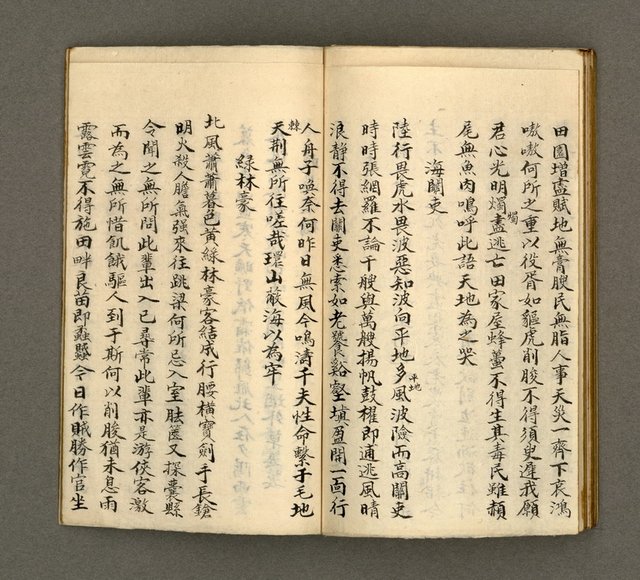 田園增盡賦地無膏腴民無脂人事天災一齊下哀鴻
嗷嗷何所之重以役胥如貙虎削朘不得須臾遲我願
君心光明燭燭盡逃亡田家屋蜂蠆不得生其毒民雖頳
尾無魚肉嗚呼此語天地為之哭
海關吏
陸行畏虎水畏波惡知波向平地平地多風波險而高關吏
時時張網羅不論千艘與萬艘揚帆鼓櫂即逋逃風晴
浪靜不得去關吏悉索如老饕谿壑填盈開一面行
人舟子喚奈何昨日無風今鳴濤千夫性命繫于毛地
棘天荆無所往嗟哉環山蔽海以為牢
綠林豪
北風蕭蕭暮色黃綠林豪客結成行腰橫寶劍手長鎗
明火殺人膽氣強來往跳梁何所忌入室胠篋又探囊縣
令聞之無所問此輩出入已尋常此輩亦是游俠客激
而為之無所惜飢餓驅人到于斯何以削朘猶未息雨
露雲霓不得施田畔良苗即蟊蠈今日作賊勝作官坐